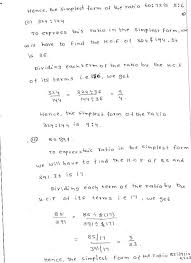 Hence, the simplest form of the ratio 60:72 is 5:6
(ii) 324:144
To express this ratio in the simplest form, we
will have to find the H.C.F of 324 & 144
is 36.
Dividing each term of the ratio by the H.C.F
of its terms i.e 36, we get
324/144 = 324÷36/144÷36 = 9/4
Hence, the simplest form of the ratio
324:144 is 9:4.
85:391
To express this ratio in the simplest form
we will have to find the H.C.F of 85 and
391. It is 17
Dividing each term of the ratio by the
H.C.F of its terms i.e 17, we get
85/391 = 85÷(17)/391÷(17)
= 85/17/391/17 = 5/23
Hence, the simplest form of the ratio 85:391 is